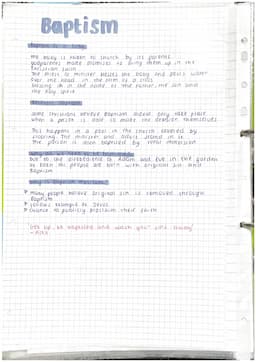 Baptism
Baptism as a baby
The baby is taken to church by its parents
godparents make promises to bring them up in the
christian faith
The priest or minister blesses the baby and pours water
over the head in the form of a cross
baptise you in the name of the father, the son and
the holy spirit
Some christians believe Baptism should only take place
when a person is able to make the decision themselves
This happens in a pool in the church
The person is then baptised by total immersion
Due to the disobedience of Adam and Eve in the garden
of Eden all people are born with original sin and
Baptism
many people believe original sin is removed through
Baptism
follows example of Jesus
chance to publicly proclaim their faith
Get up, be baptised and wash your sins away